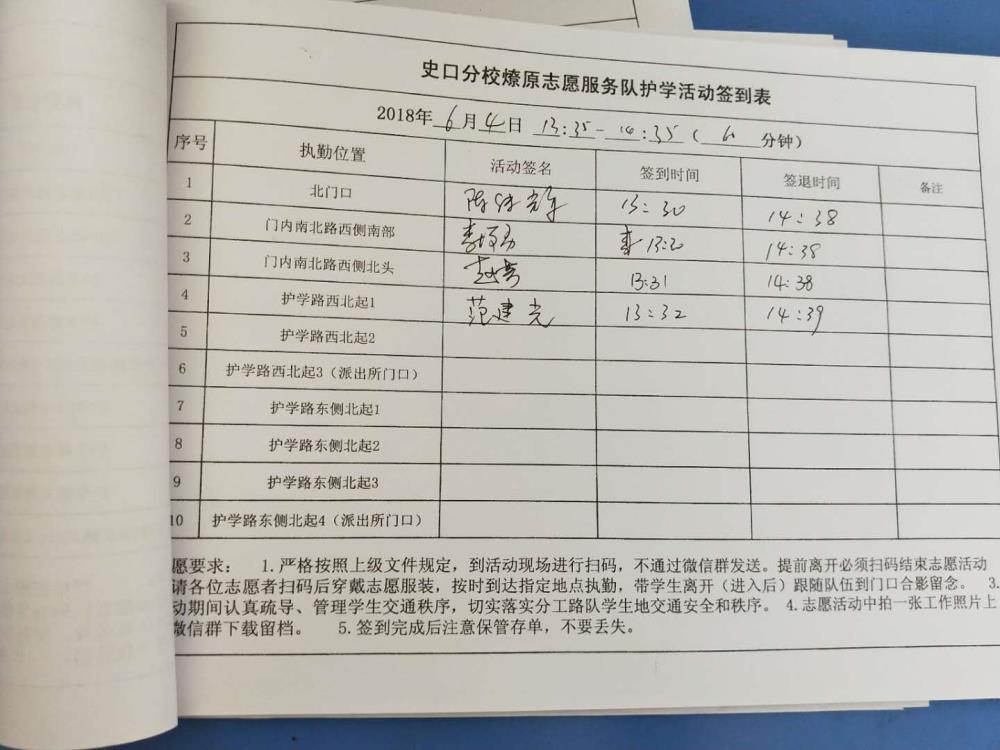 史口分校燎原志愿服务队护学活动签到表
2018年 6 月 4 日 13:35-14:35 ( 分钟)
序号 执勤位置 活动签名 签到时间 签退时间 备注
1 北门口 13:30 14:38
2 门内南北路西侧南部 14:38
3 门内南北路西侧北头 13:31 14:38
4 护学路西北起1 范建光 13:32 14:39
5 护学路西北起2
6 护学路西北起3（派出所门口）
7 护学路东侧北起1
8 护学路东侧北起2
9 护学路东侧北起3
10 护学路东侧北起4（派出所门口）
愿要求： 1.严格按照上级文件规定，到活动现场进行扫码，不通过微信群发送。提前离开必须扫码结束志愿活动
请各位志愿者扫码后穿戴志愿服装，按时到达指定地点执勤，带学生离开（进入后）跟随队伍到门口合影留念。 3.
动期间认真疏导、管理学生交通秩序，切实落实分工路队学生地交通安全和秩序。 4.志愿活动中拍一张工作照片上
微信群下载留档。 5.签到完成后注意保管存单，不要丢失。